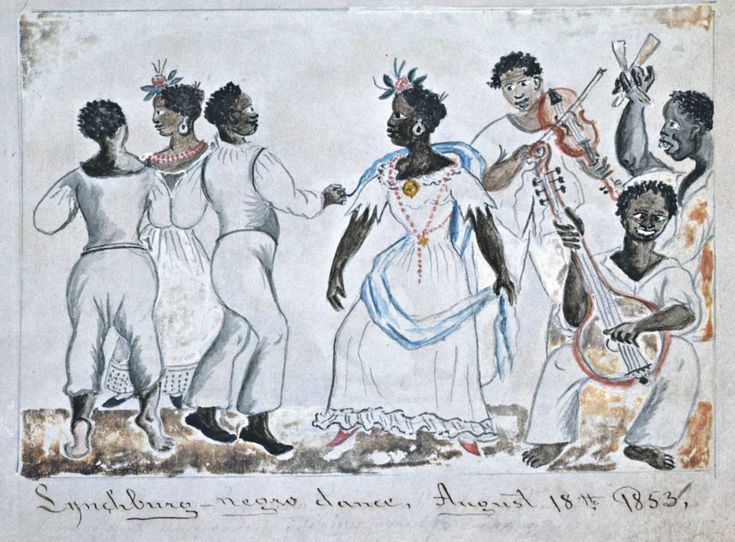 Lynchburg - negro dance, August 18th 1853,